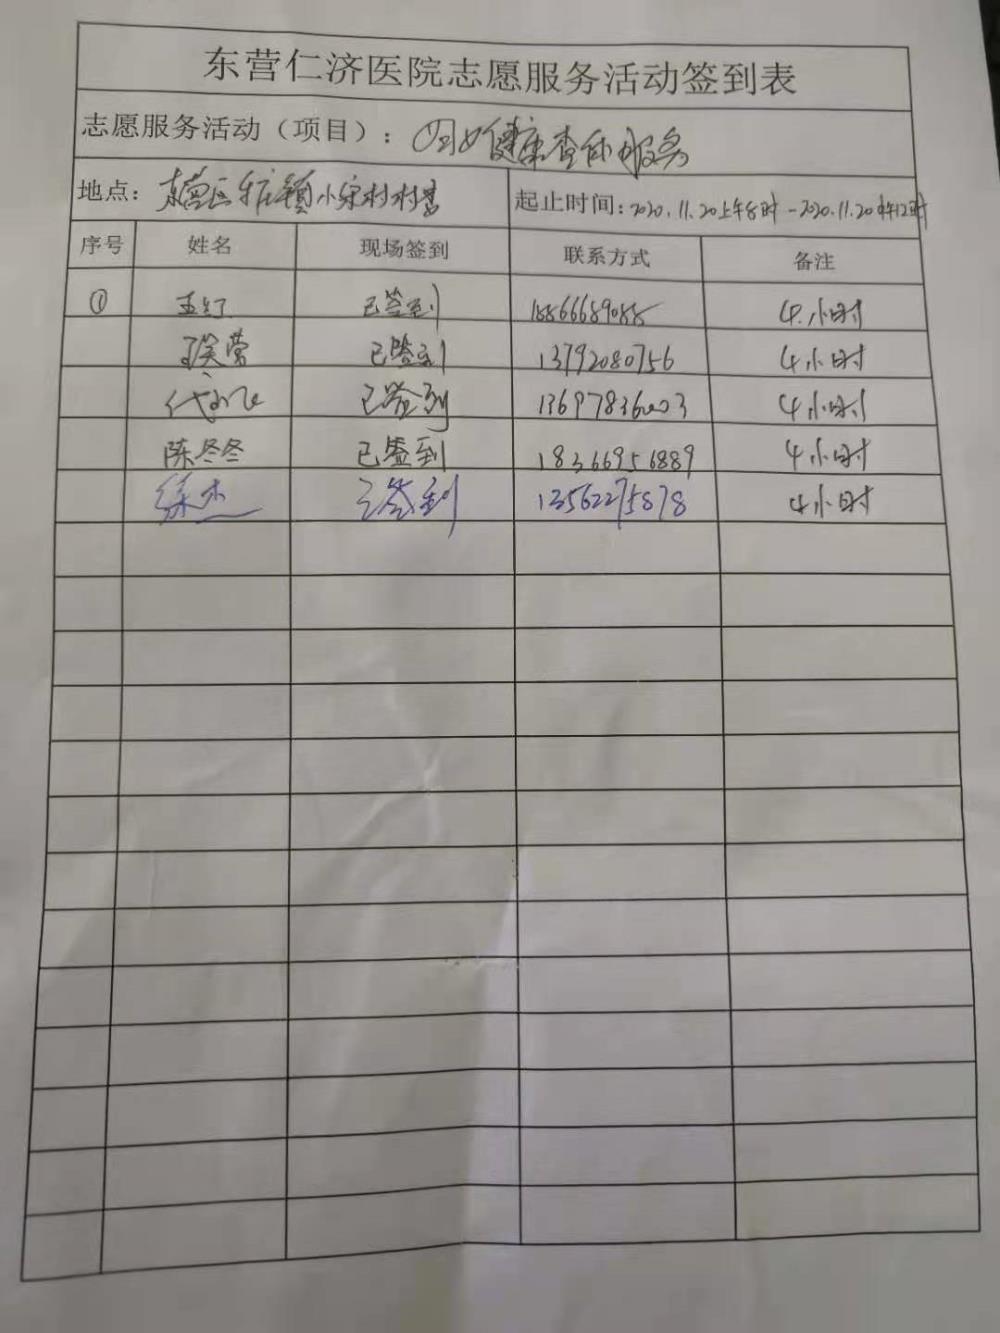 东营仁济医院志愿服务活动签到表
志愿服务活动（项目）：妇女健康查体服务
地点：东营区牛庄镇小宋村村委 起止时间：2020.11.20上午8时-2020.11.20中午12时
序号 姓名 现场签到 联系方式 备注
① 孟红 已签到 4小时
已签到 13792080756 4小时
已签到 13697836003 4小时
陈冬冬 已签到 18366956889 4小时
徐杰 已签到 13562275878 4小时